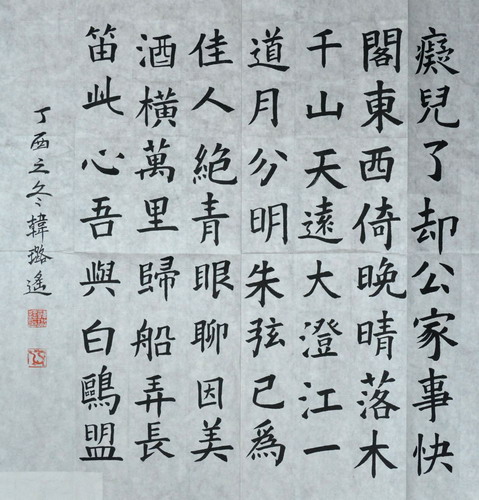 癡兒了却公家事快
閣東西倚晚晴落木
千山天遠大澄江一
道月分明朱弦已爲
佳人絶青眼聊因美
酒橫萬里歸船弄長
笛此心吾與白鷗盟
丁酉之冬韓璐遙